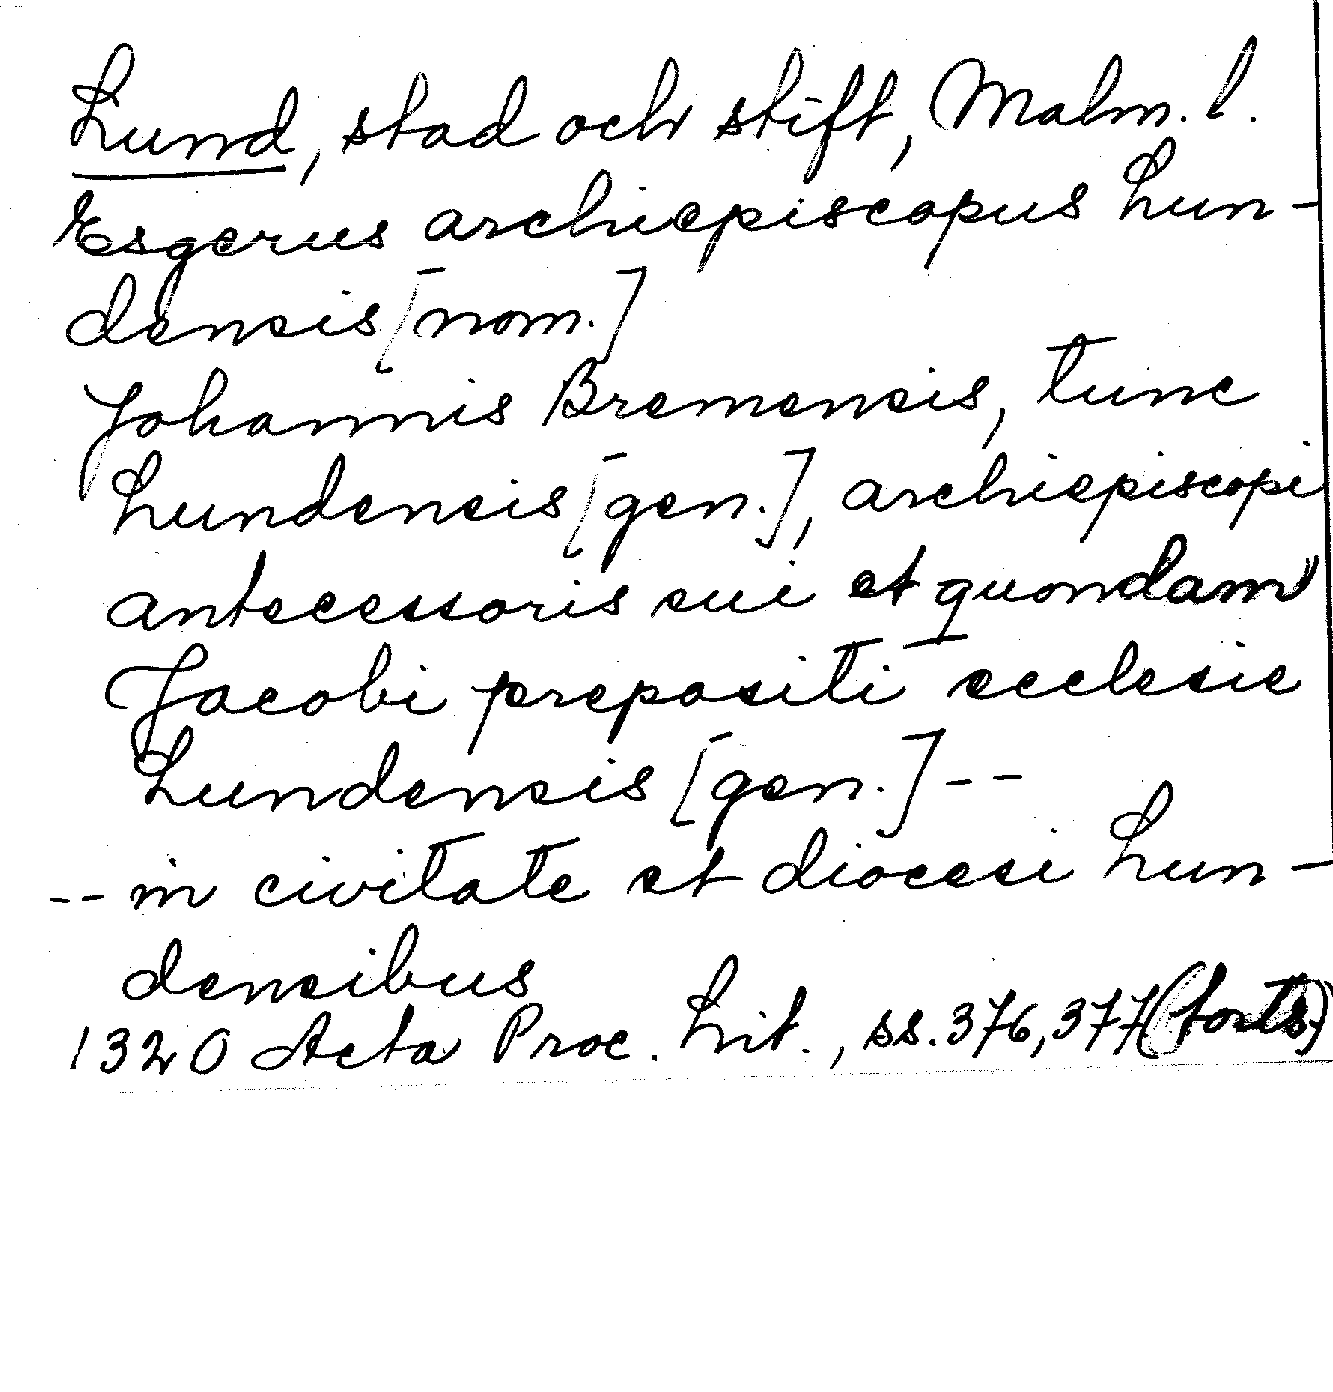 Lund, stad och stift, Malm. l.
Esgerus archiepiscopus Lun-
densis [nom.]
Johannis Bremensis, tunc
Lundensis [gen.], archiepiscopi
antecessoris sui et quondam
Jacobi prepositi ecclesie
Lundensis [gen.] --
-- in civitate et diocesi Lun-
densibus
1320 Acta Proc. Lit., ss. 376, 377 (forts.)